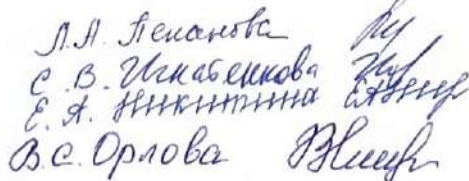 Л.А. Пеканова
С.В. Игнатенкова
Е.А. Никитина
В.С. Орлова